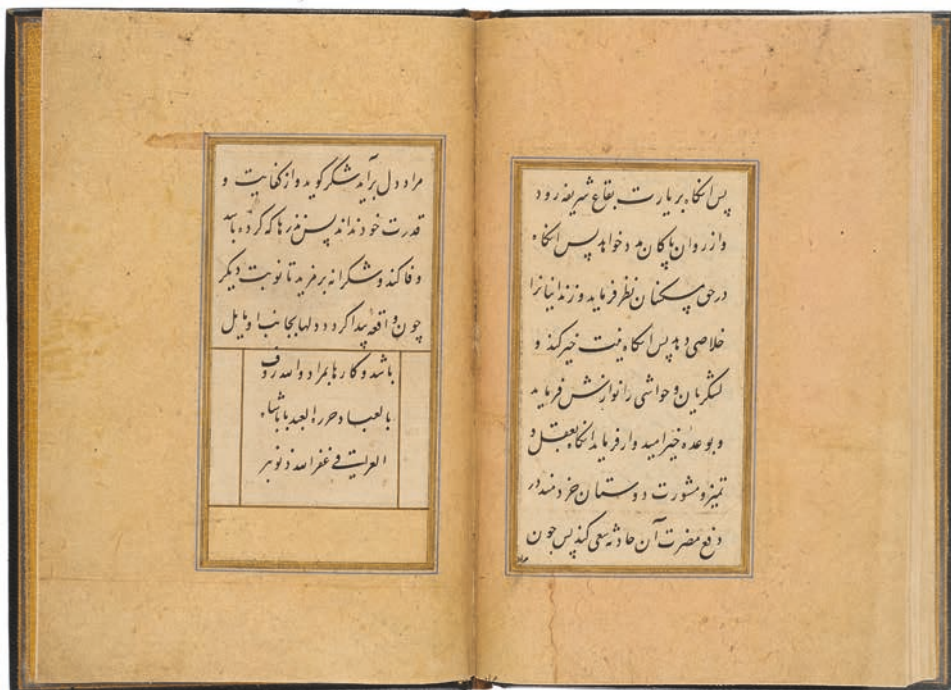 پس انکاه بزیارت بقاع شریفه رود
و از روان پاکان مدد خواهد پس انکاه
در حق مسکینان نظر فرماید و زندانیانرا
خلاصی دهد پس انکاه نیت خیر کند و
لشکریان و حواشی را نوازش فرماید
و بوعده خیر امیدوار فرماید انکاه بعقل و
تمیز و مشورت دوستان خردمند در
دفع مضرت آن حادثه سعی کند پس چون
مراد
مراد دل برآید شکر کوید و از کفایت و
قدرت خود نداند پس نذرها که کرده باشد
وفا کند و شکرانه بر مزید تا نوبت دیکر
چون واقعهٔ پیدا کردد دلها بجانب او مایل
باشد و کارها بمراد والله رؤف
بالعباد حرره العبد باباشاه
العراقی غفر الله ذنوبه